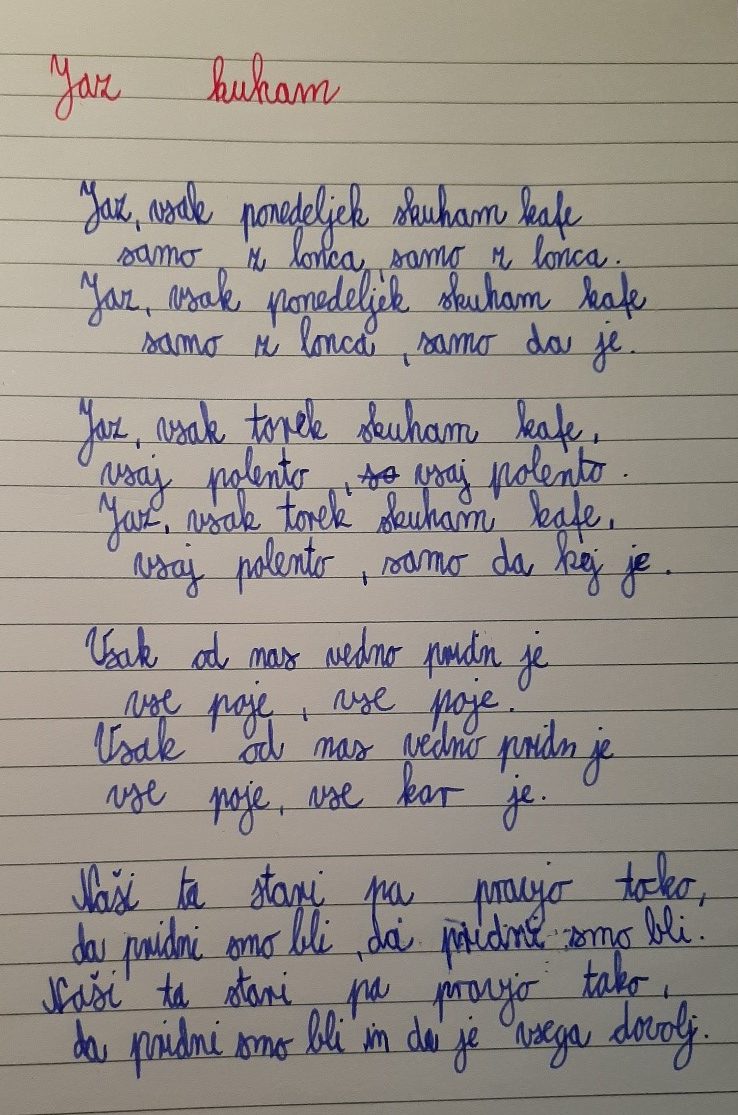 Jaz kuham
Jaz, vsak ponedeljek skuham kafe
samo z lonca, samo z lonca.
Jaz, vsak ponedeljek skuham kafe
samo z lonca, samo da je.
Jaz, vsak torek skuham kafe,
vsaj polento, so vsaj polento.
Jaz, vsak torek skuham kafe,
vsaj polento, samo da kej je.
Vsak od nas vedno pridn je
vse poje, vse poje.
Vsak od nas vedno pridn je
vse poje, vse kar je.
Naši ta stari pa pravjo tako,
da pridni smo bli, da pridni smo bli.
Naši ta stari pa pravjo tako,
da pridni smo bli in da je vsega dovolj.